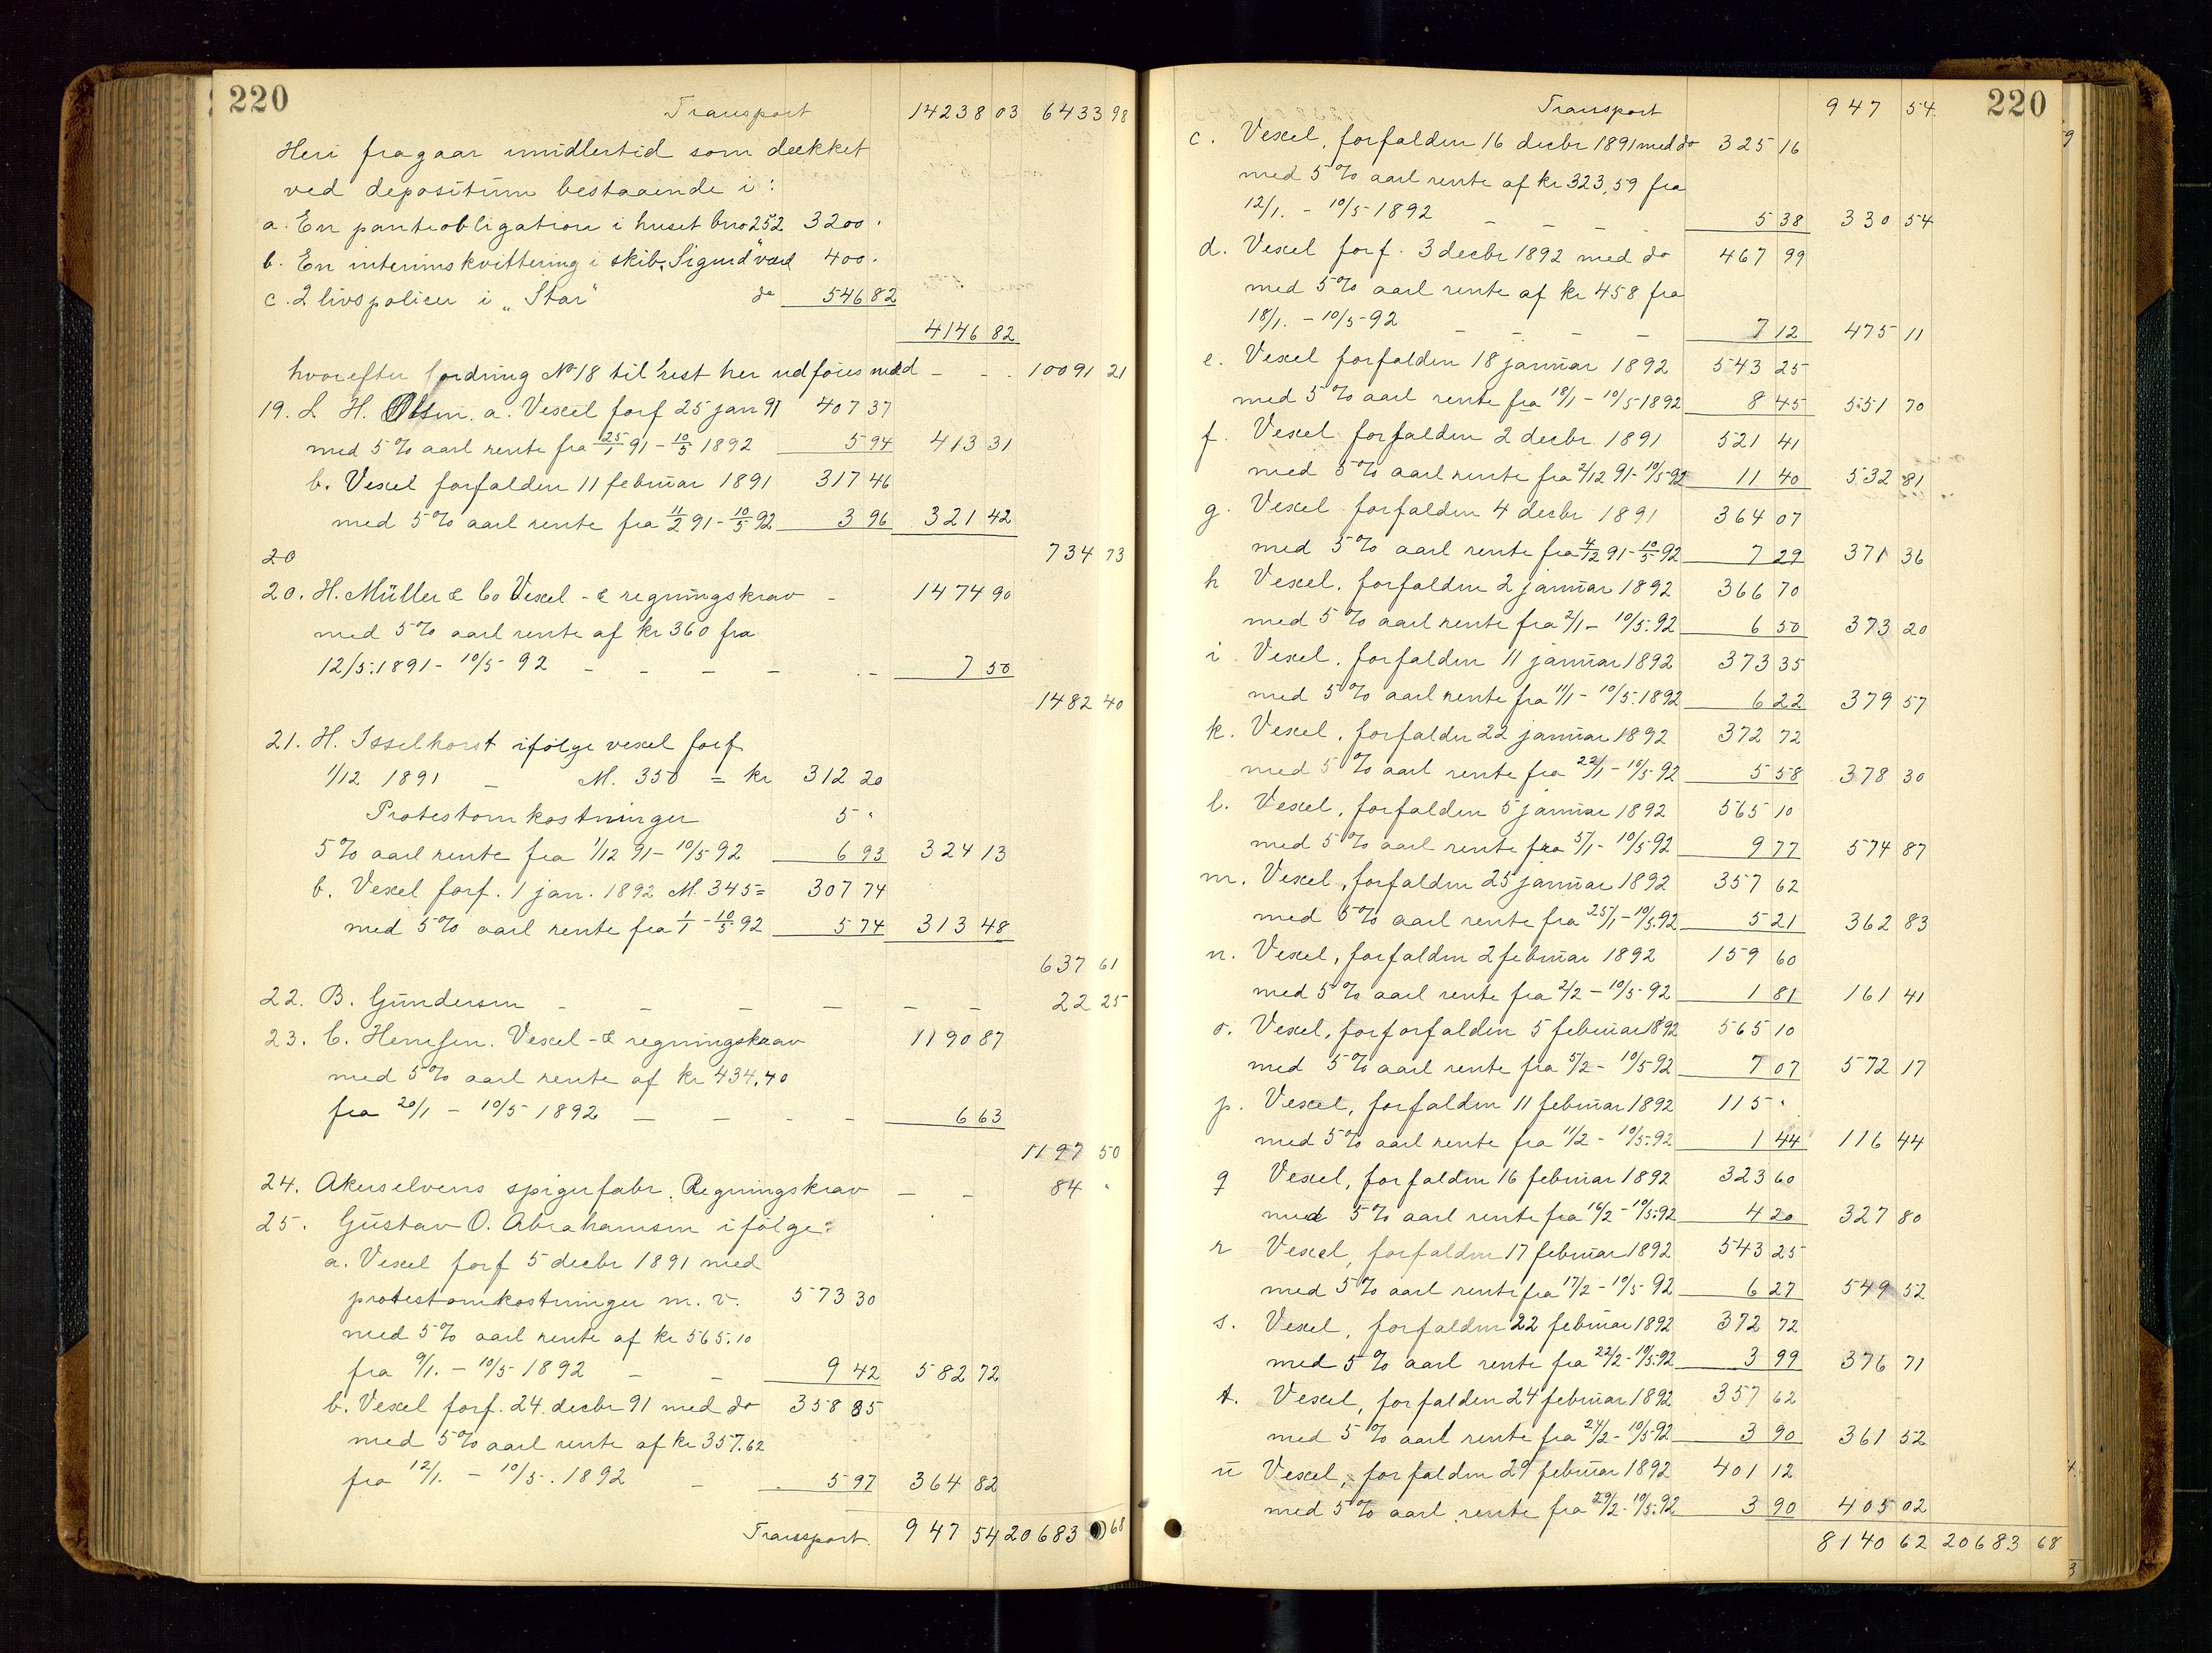 220
Transport 14238 03 6433 98
Heri fragaar imidlertid som dækket
ved depositum bestaaende i:
a. En panteobligation i huset bno 252 3200 "
b. En interimskvittering i skib "Sigurd" værd 400 "
c. 2 livspolicer i "Star" do 546 82
4146 82
hvorefter fordring No 18 til rest her udføres med - - - 10091 21
19. L. H. Olsen. a. Vexel forf 25 jan 91 407 37
med 5% aarl rente fra 25/1 91 - 10/5 1892 5 94 413 31
b. Vexel forfalden 11 februar 1891 317 46
med 5% aarl rente fra 11/2 91 - 10/5 92 3 96 321 42
20 734 73
20. H. Müller & Co Vexel- & regningskrav - 1474 90
med 5% aarl rente af kr 360 fra
12/5. 1891 - 10/5 - 92 - - - - - 7 50
1482 40
21. H. Isselhorst ifølge vexel forf
1/12 1891 - M. 350 = kr 312 20
Protestomkostninger 5 "
5% aarl rente fra 1/12 91 - 10/5 92 6 93 324 13
b. Vexel forf. 1 jan. 1892 M. 345 = 307 74
med 5% aarl rente fra 1/1 - 10/5 92 5 74 313 48
637 61
22. B. Gundersen - - - - - - 22 25
23. C. Hemsen. Vexel- & regningskrav 1190 87
med 5% aarl rente af kr 434.40
fra 20/1 - 10/5 1892 - - - - 6 63
1197 50
24. Akerselvens spigerfabr. Regningskrav - - 84 "
25. Gustav O. Abrahamsen ifølge:
a. Vexel forf 5 decbr 1891 med
protestomkostninger m. v. 573 30
med 5% aarl rente af kr 565.10
fra 9/1. - 10/5 1892 - - 9 42 582 72
b. Vexel forf. 24. decbr 91 med do 358 85
med 5% aarl rente af kr 357.62
fra 12/1. - 10/5. 1892 - 5 97 364 82
Transport. 947 54 20683 68
220
Transport 947 54
c. Vexel, forfalden 16 decbr 1891 med do 325 16
med 5% aarl rente af kr 323,59 fra
12/1. - 10/5 1892 - - - - 5 38 330 54
d. Vexel forf. 3 decbr 1892 med do 467 99
med 5% aarl rente af kr 458 fra
18/1. - 10/5 - 92 - - - - 7 12 475 11
e. Vexel forfalden 18 januar 1892 543 25
med 5% aarl rente fra 18/1 - 10/5 1892 8 45 551 70
f. Vexel forfalden 2 decbr 1891 521 41
med 5% aarl rente fra 2/12 91 - 10/5 92 11 40 532 81
g. Vexel forfalden 4 decbr 1891 364 07
med 5% aarl rente fra 4/12 91 - 10/5 92 7 29 371 36
h Vexel, forfalden 2 januar 1892 366 70
med 5% aarl rente fra 2/1 - 10/5. 92 6 50 373 20
i. Vexel, forfalden 11 januar 1892 373 35
med 5% aarl rente fra 11/1 - 10/5. 1892 6 22 379 57
k. Vexel, forfalden 22 januar 1892 372 72
med 5% aarl rente fra 22/1 - 10/5 - 92 5 58 378 30
l. Vexel, forfalden 5 januar 1892 565 10
med 5% aarl rente fra 5/1 - 10/5 - 92 9 77 574 87
m. Vexel, forfalden 25 januar 1892 357 62
med 5% aarl rente fra 25/1 - 10/5. 92 5 21 362 83
n. Vexel, forfalden 2 februar 1892 159 60
med 5% aarl rente fra 2/2 - 10/5 - 92 1 81 161 41
o. Vexel, forforfalden 5 februar 1892 565 10
med 5% aarl rente fra 5/2 - 10/5 92 7 07 572 17
p. Vexel, forfalden 11 februar 1892 115 "
med 5% aarl rente fra 11/2 - 10/5. 92 1 44 116 44
q Vexel, forfalden 16 februar 1892 323 60
med 5% aarl rente fra 16/2 - 10/5. 92 4 20 327 80
r Vexel, forfalden 17 februar 1892 543 25
med 5% aarl rente fra 17/2 - 10/5 92 6 27 549 52
s. Vexel, forfalden 22 februar 1892 372 72
med 5% aarl rente fra 22/2 - 10/5. 92 3 99 376 71
t. Vexel, forfalden 24 februar 1892 357 62
med 5% aarl rente fra 24/2 - 10/5 92 3 90 361 52
u Vexel, forfalden 29 februar 1892 401 12
med 5% aarl rente fra 29/2 - 10/5. 92 3 90 405 02
8140 62 20683 68